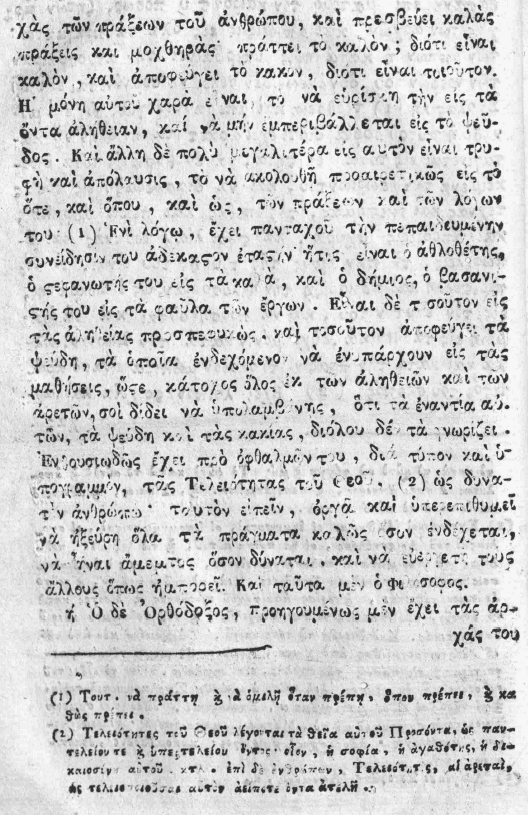 χὰς τῶν πράξεων τοῦ ἀνθρώπου, καὶ πρεσβεύει καλὰς
πράξεις καὶ μοχθηρὰς πράττει τὸ καλὸν; διότι εἶναι
καλὸν, καὶ ἀποφεύγει τὸ κακὸν, διότι εἶναι τοιοῦτον.
Η῾ μόνη αὐτοῦ χαρὰ εἶναι, τὸ νὰ εὑρίσκῃ τὴν εἰς τὰ
ὄντα ἀλήθειαν, καὶ νὰ μὴν ἐμπεριβάλλεται εἰς τὸ ψεῦ-
δος. Καὶ ἄλλη δὲ πολὺ μεγαλιτέρα εἰς αὐτὸν εἶναι τρυ-
φὴ καὶ ἀπόλαυσις, τὸ νὰ ἀκολουθῇ προαιρετικῶς εἰς τὸ
ὅτε, καὶ ὅπου, καὶ ὡς, τῶν πράξεων καὶ τῶν λόγων
του (1) Ε᾿νὶ λόγῳ, ἔχει πανταχοῦ τὴν πεπαιδευμένην
συνείδησίν του ἀδέκαϛον ἐταϛὴν ἥτις εἶναι ὁ ἀθλοθέτης,
ὁ ϛεφανωτής του εἰς τὰ καλὰ, καὶ ὁ δήμιος, ὁ βασανι-
ϛής του εἰς τὰ φαῦλα τῶν ἔργων. Εἶναι δὲ τοσοῦτον εἰς
τὰς ἀληθείας προσπεφυκὼς, καὶ τοσοῦτον ἀποφεύγει τὰ
ψεύδη, τὰ ὁποῖα ἐνδεχόμενον νὰ ἐνυπάρχουν εἰς τὰς
μαθήσεις, ὥϛε, κάτοχος ὅλος ἐκ τῶν ἀληθειῶν καὶ τῶν
ἀρετῶν, σοὶ δίδει νὰ ὑπολαμβάνῃς, ὅτι τὰ ἐναντία αὐ-
τῶν, τὰ ψεύδη καὶ τὰς κακίας, διόλου δὲν τὰ γνωρίζει.
Ε᾿νθουσιωδῶς ἔχει πρὸ ὀφθαλμῶν του, διὰ τύπον καὶ ὑ-
πογραμμὸν, τὰς Τελειότητας τοῦ Θεοῦ, (2) ὡς δυνα-
τὸν ἀνθρώπῳ· ταὐτὸν εἰπεῖν, ὀργᾷ καὶ ὑπερεπιθυμεῖ
νὰ ἠξεύρῃ ὅλα τὰ πράγματα καλῶς ὅσον ἐνδέχεται,
νὰ ᾖναι ἄμεμπτος ὅσον δύναται, καὶ νὰ εὐεργετῇ τοὺς
ἄλλους ὅπως ἠμπορεῖ. Καὶ ταῦτα μὲν ὁ Φιλόσοφος.
ή Ὁ δὲ Ὀρθόδοξος, προηγουμένως μὲν ἔχει τὰς ἀρ-
χάς του
(1) Τουτ. νὰ πράττῃ ϗ νὰ ὁμιλῇ ὅταν πρέπῃ, ὅπου πρέπει, ϗ κα
θὼς πρέπει.
(2) Τελειότητες τοῦ Θεοῦ λέγονται τὰ θεῖα αὐτοῦ Προσόντα, ὡς παν-
τελείου τε ϗ ὑπερτελείου ὄντος· οἷον, ἡ σοφία, ἡ ἀγαθότης, ἡ δι-
καιοσύνη αὐτοῦ. κτλ. ἐπὶ δὲ ἀνθρώπων, Τελειότητες, αἱ ἀρεταὶ,
ὡς τελειοποιοῦσαι αὐτὸν ἀείποτε ὄντα ἀτελῆ.